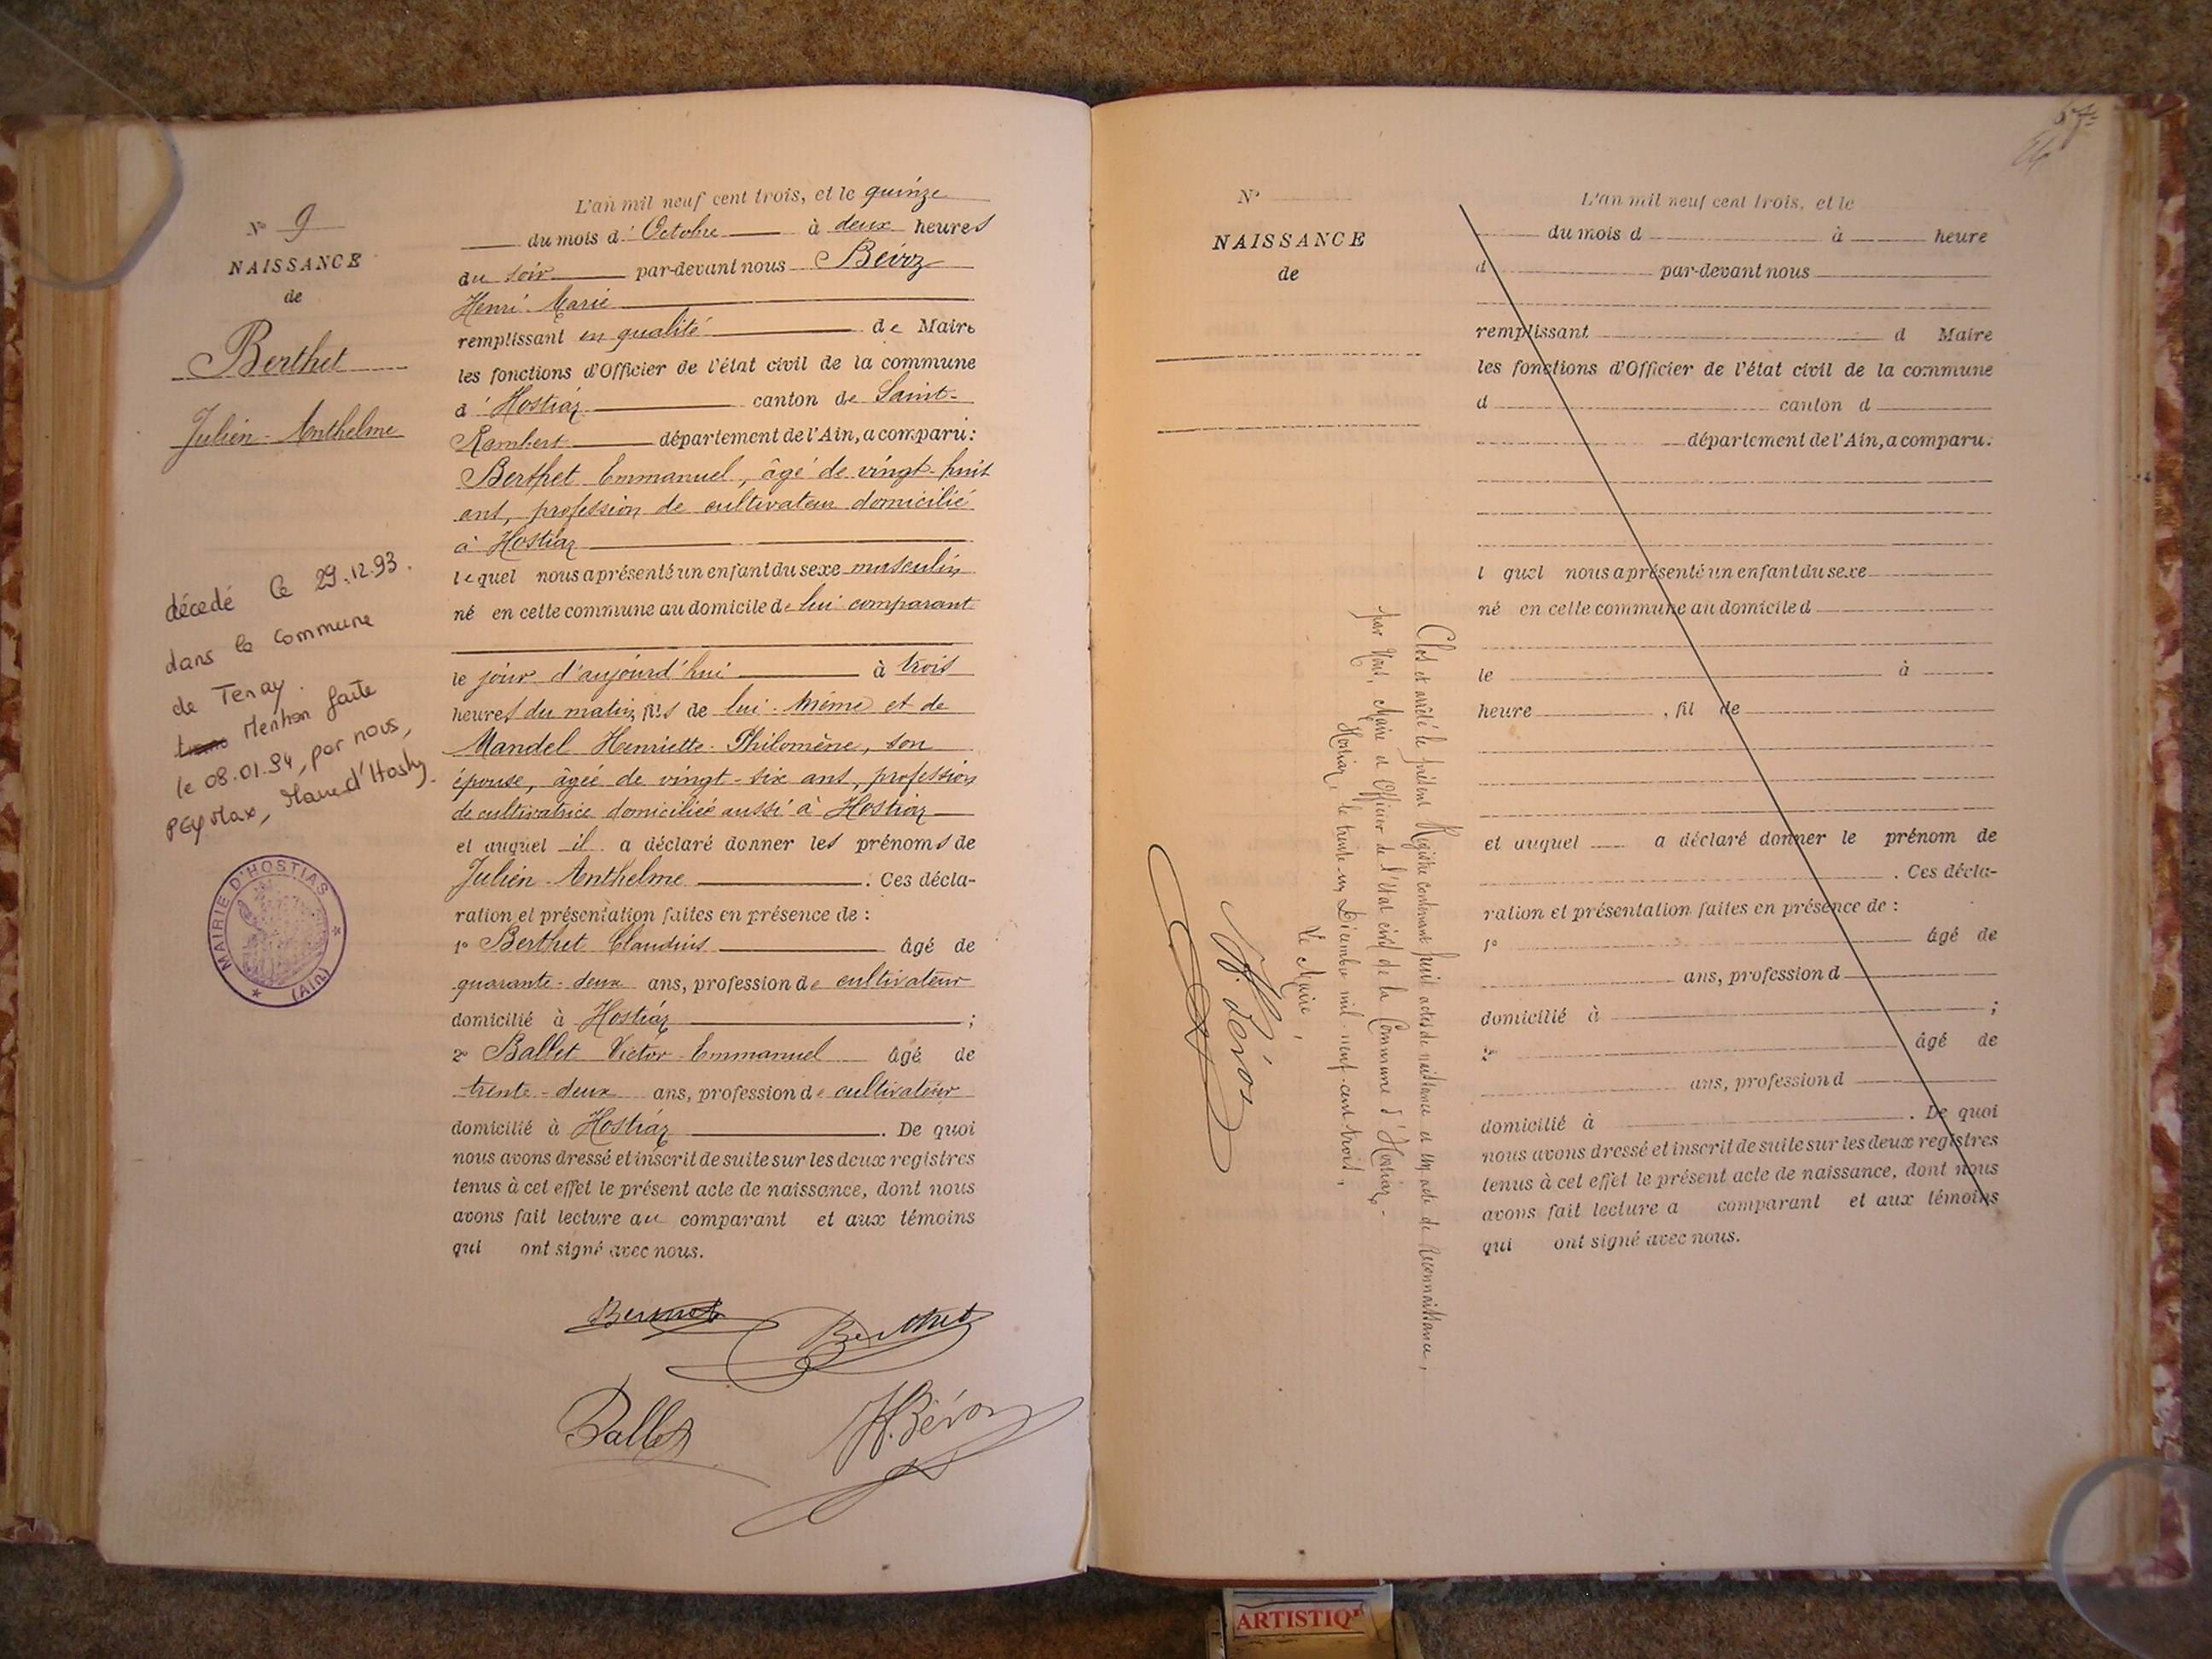 N° 9
NAISSANCE
de
Berthet
Julien-Anthelme
décedé le 29.12.93.
dans la commune
de Tenay.
Mention faite
le 08.01.94, par nous,
PEY Max, Maire d'Hostiaz.
MAIRIE D'HOSTIAS
(Ain)
L'an mil neuf cent trois, et le quinze
du mois d'Octobre à deux heures
du soir par-devant nous
Henri Marie
remplissant en qualité de Maire
les fonctions d'Officier de l'état civil de la commune
d'Hostiaz canton de Saint-
Rambert département de l'Ain, a comparu:
Berthet Emmanuel, âgé de vingt-huit
ans, profession de cultivateur domicilié
à Hostiaz
lequel nous a présenté un enfant du sexe masculin
né en cette commune au domicile de lui comparant
le jour d'aujourd'hui à trois
heures du matin, fils de lui-même et de
Mandel Henriette-Philomène, son
épouse, âgée de vingt-six ans, profession
de cultivatrice domiciliée aussi à Hostiaz
et auquel il a déclaré donner les prénoms de
Julien-Anthelme. Ces décla-
ration et présentation faites en présence de :
1° Berthet Claudius âgé de
quarante-deux ans, profession de cultivateur
domicilié à Hostiaz ;
2° Ballet Victor-Emmanuel âgé de
trente-deux ans, profession de cultivateur
domicilié à Hostiaz. De quoi
nous avons dressé et inscrit de suite sur les deux registres
tenus à cet effet le présent acte de naissance, dont nous
avons fait lecture au comparant et aux témoins
qui ont signé avec nous.
Berthet
Ballet
N°
NAISSANCE
de
Clos et arrêté le présent Registre contenant huit actes de naissance et un acte de Reconnaissance,
par Nous, Maire et Officier de l'Etat civil de la Commune d'Hostiaz,
Hostiaz, le trente un Décembre mil-neuf-cent-trois,
Le Maire,
L'an mil neuf cent trois, et le
du mois d à heure
d par-devant nous
remplissant d Maire
les fonctions d'Officier de l'état civil de la commune
d canton d
département de l'Ain, a comparu:
l quel nous a présenté un enfant du sexe
né en cette commune au domicile d
le à
heure , fil de
et auquel a déclaré donner le prénom de
. Ces décla-
ration et présentation faites en présence de :
1° âgé de
ans, profession d
domicilié à ;
2° âgé de
ans, profession d
domicilié à . De quoi
nous avons dressé et inscrit de suite sur les deux registres
tenus à cet effet le présent acte de naissance, dont nous
avons fait lecture a comparant et aux témoins
qui ont signé avec nous.
ARTISTIQ